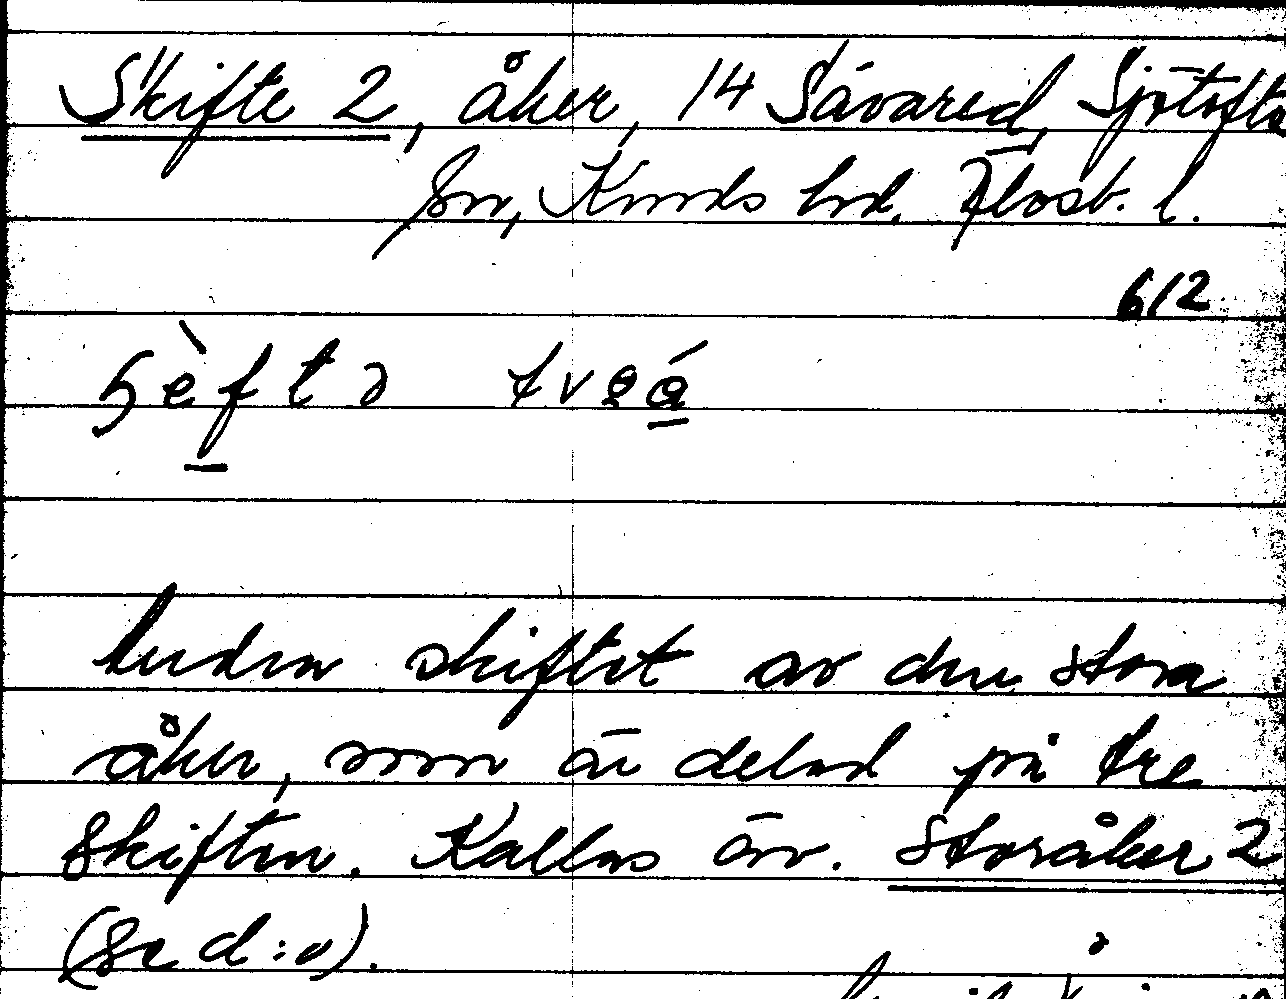 Skifte 2, åker, 14 Sävared, Sjötofta
sn, Kinds hrd. Älvsb. l.
612
andra skiftet av den stora
åker, som är delad på tre
skiften. Kallas äv. Storåker 2
(se d:o).